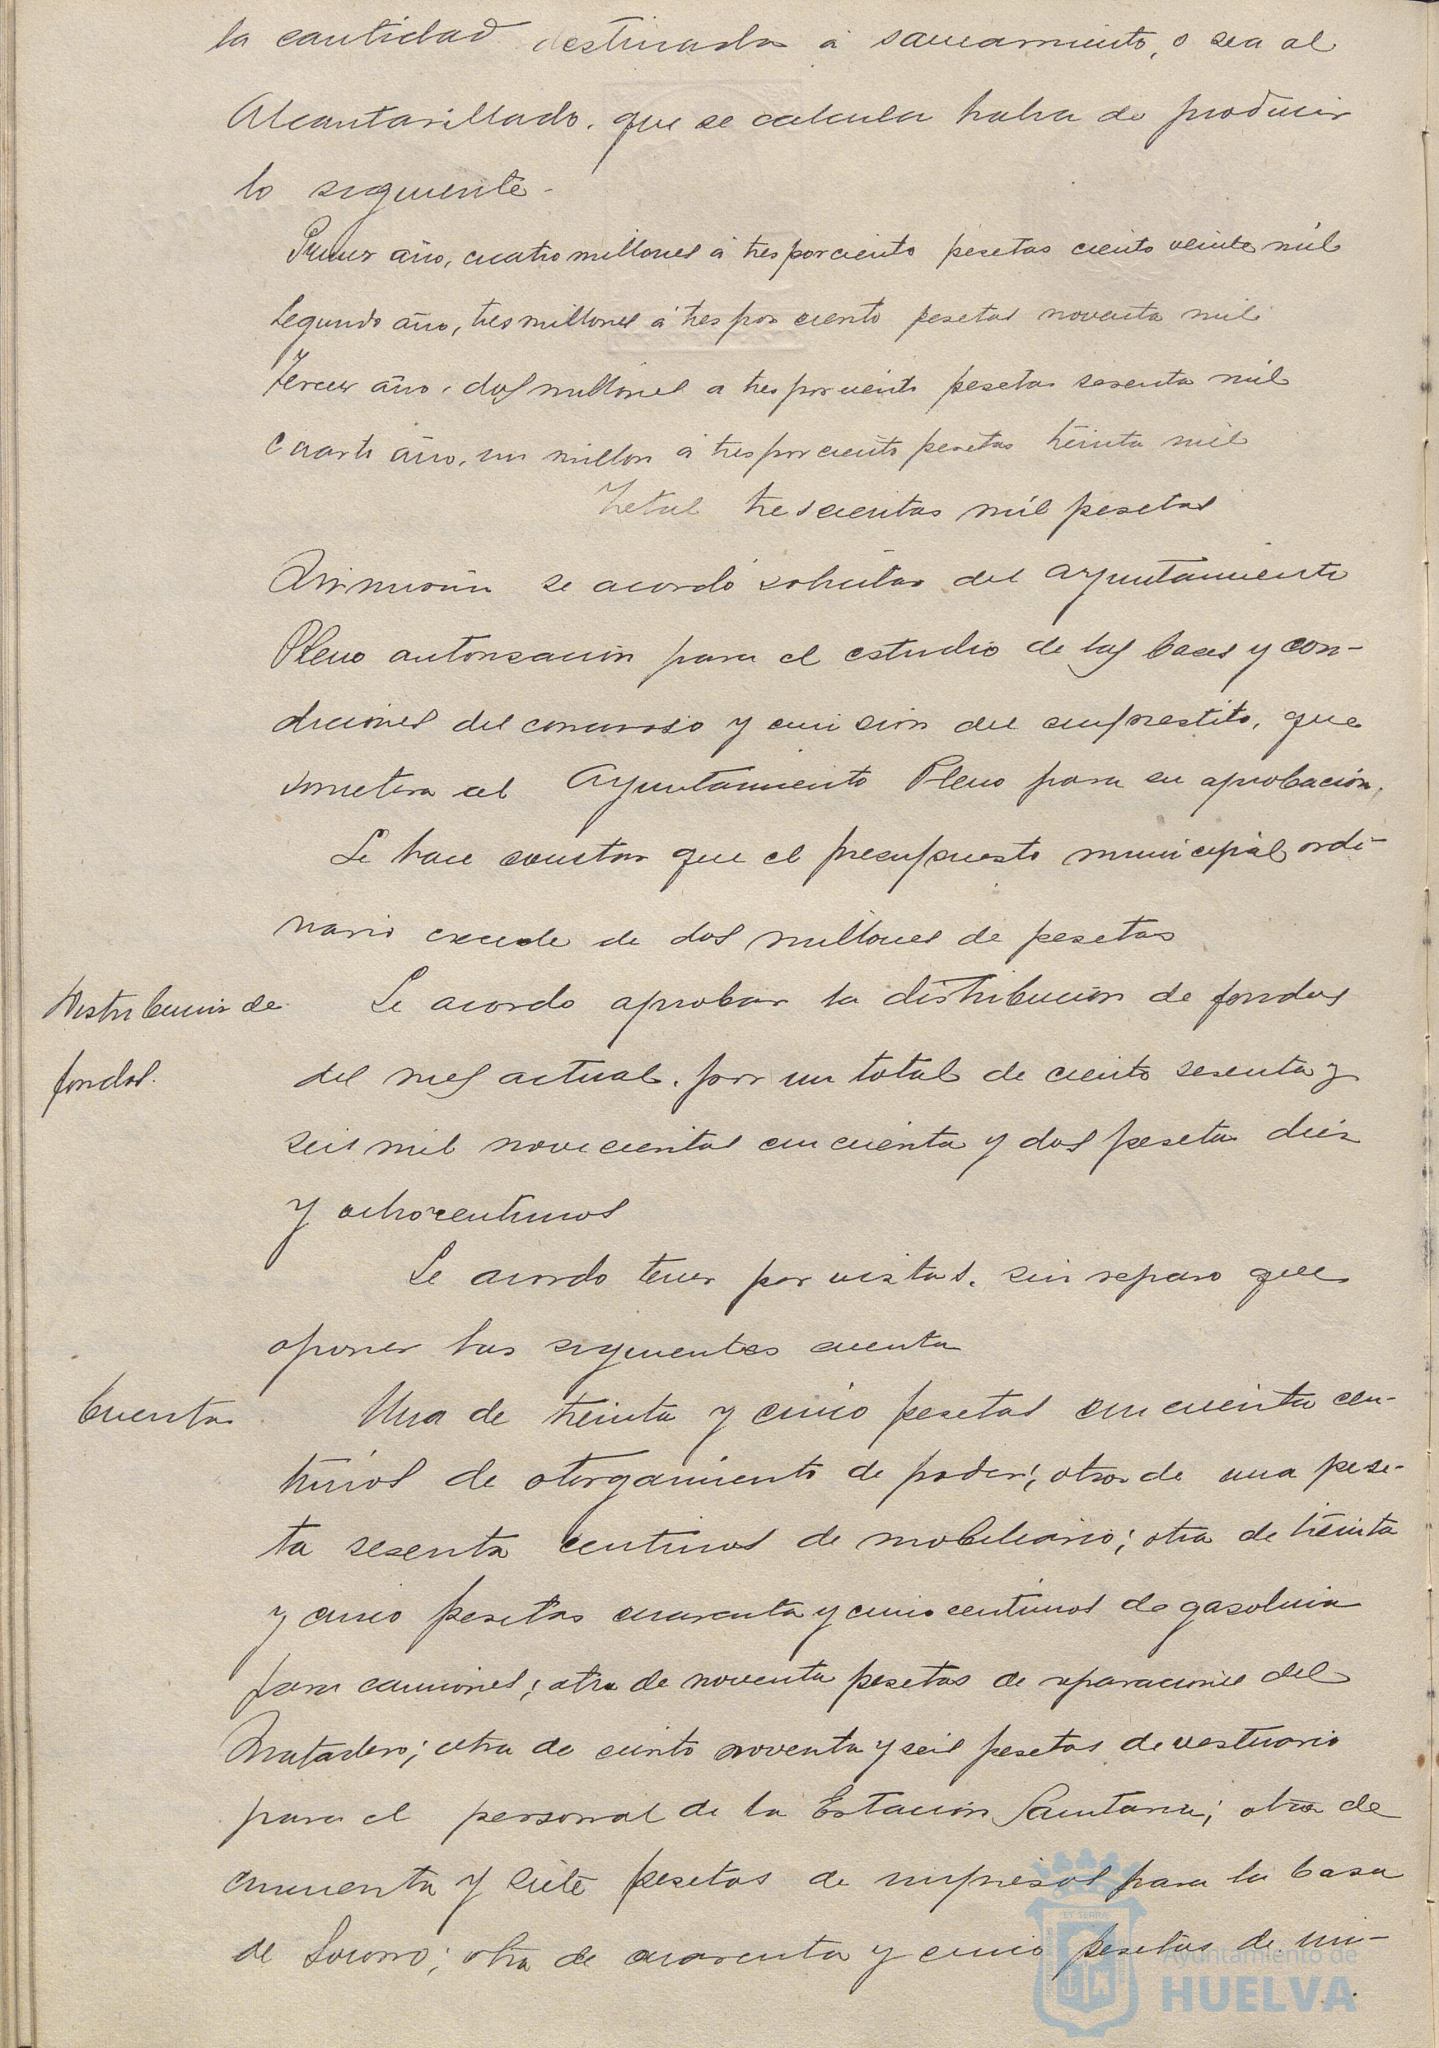 la cantidad destinada a saneamiento, o sea al
Alcantarillado. que se calcula habra de producir
lo siguiente-
Primer año, cuatro millones á tres por ciento pesetas ciento veinte mil
Segundo año, tres millones á tres por ciento pesetas noventa mil
Tercer año, dos millones a tres por ciento pesetas sesenta mil
Cuarto año, un millon á tres por ciento pesetas treinta mil
Total trescientas mil pesetas
Asimismo se acordó solicitar del Ayuntamiento
Pleno autorización para el estudio de las bases y con-
diciones del concurso y emision del emprestito, que
sometera al Ayuntamiento Pleno para su aprobación.
Se hace constar que el presupuesto municipal ordi-
nario excede de dos millones de pesetas
Distribucion de
fondos.
Se acordo aprobar la distribución de fondos
del mes actual, por un total de ciento sesenta y
seis mil novecientas cincuenta y dos peseta diez
y ocho centimos
Se acordo tener por vistas, sin reparo que
oponer las siguientes cuenta
Cuenta
Una de treinta y cinco pesetas cincuenta cen-
timos de otorgamiento de poder; otra de una pese-
ta sesenta centimos de mobiliario; otra de treinta
y cinco pesetas cuarenta y cinco centimos de gasolina
para camiones; otra de noventa pesetas de reparaciones del
Matadero; otra de ciento noventa y seis pesetas de vestuario
para el personal de la Estación Sanitaria; otra de
cincuenta y siete pesetas de impresos para la Casa
de Socorro; otra de cuarenta y cinco pesetas de im-
Ayuntamiento de
HUELVA